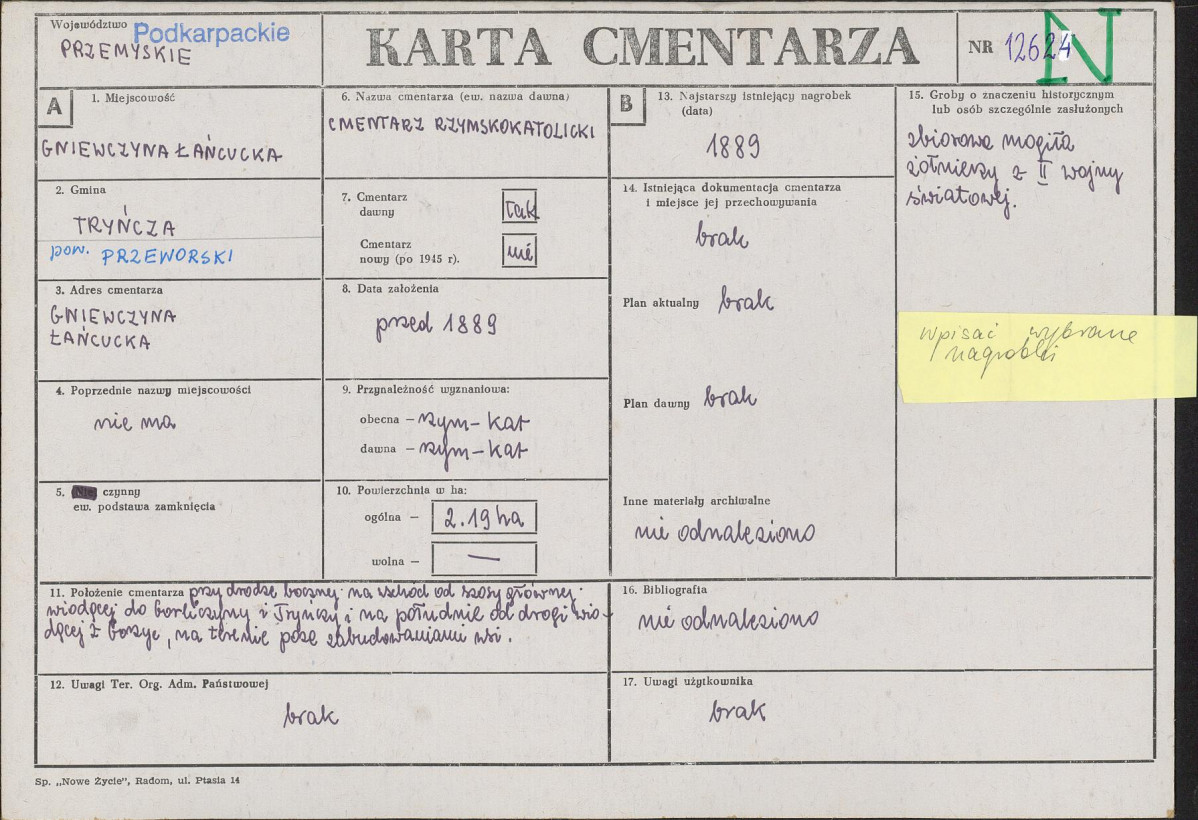 Województwo Podkarpackie
PRZEMYSKIE
KARTA CMENTARZA
NR 12624
N
A
1. Miejscowość
GNIEWCZYNA ŁAŃCUCKA
2. Gmina
TRYŃCZA
pow. PRZEWORSKI
3. Adres cmentarza
GNIEWCZYNA
ŁAŃCUCKA
4. Poprzednie nazwy miejscowości
nie ma
5. Nie czynny
ew. podstawa zamknięcia
6. Nazwa cmentarza (ew. nazwa dawna)
CMENTARZ RZYMSKOKATOLICKI
7. Cmentarz
dawny tak
Cmentarz
nowy (po 1945 r). nie
8. Data założenia
przed 1889
9. Przynależność wyznaniowa:
obecna – rzym-kat
dawna – rzym-kat
10. Powierzchnia w ha:
ogólna – 2.19 ha
wolna – —
11. Położenie cmentarza przy drodze bocznej na wschód od szosy głównej
wiodącej do Gorliczyny i Tryńczy i na południe od drogi wio-
dącej z Gorzyc, na terenie poza zabudowaniami wsi.
12. Uwagi Ter. Org. Adm. Państwowej
brak
B
13. Najstarszy istniejący nagrobek
(data)
1889
14. Istniejąca dokumentacja cmentarza
i miejsce jej przechowywania
brak
Plan aktualny brak
Plan dawny brak
Inne materiały archiwalne
nie odnaleziono
15. Groby o znaczeniu historycznym
lub osób szczególnie zasłużonych
zbiorowa mogiła
żołnierzy z II wojny
światowej.
wpisać wybrane
nagrobki
16. Bibliografia
nie odnaleziono
17. Uwagi użytkownika
brak
Sp. „Nowe Życie”, Radom, ul. Ptasia 14